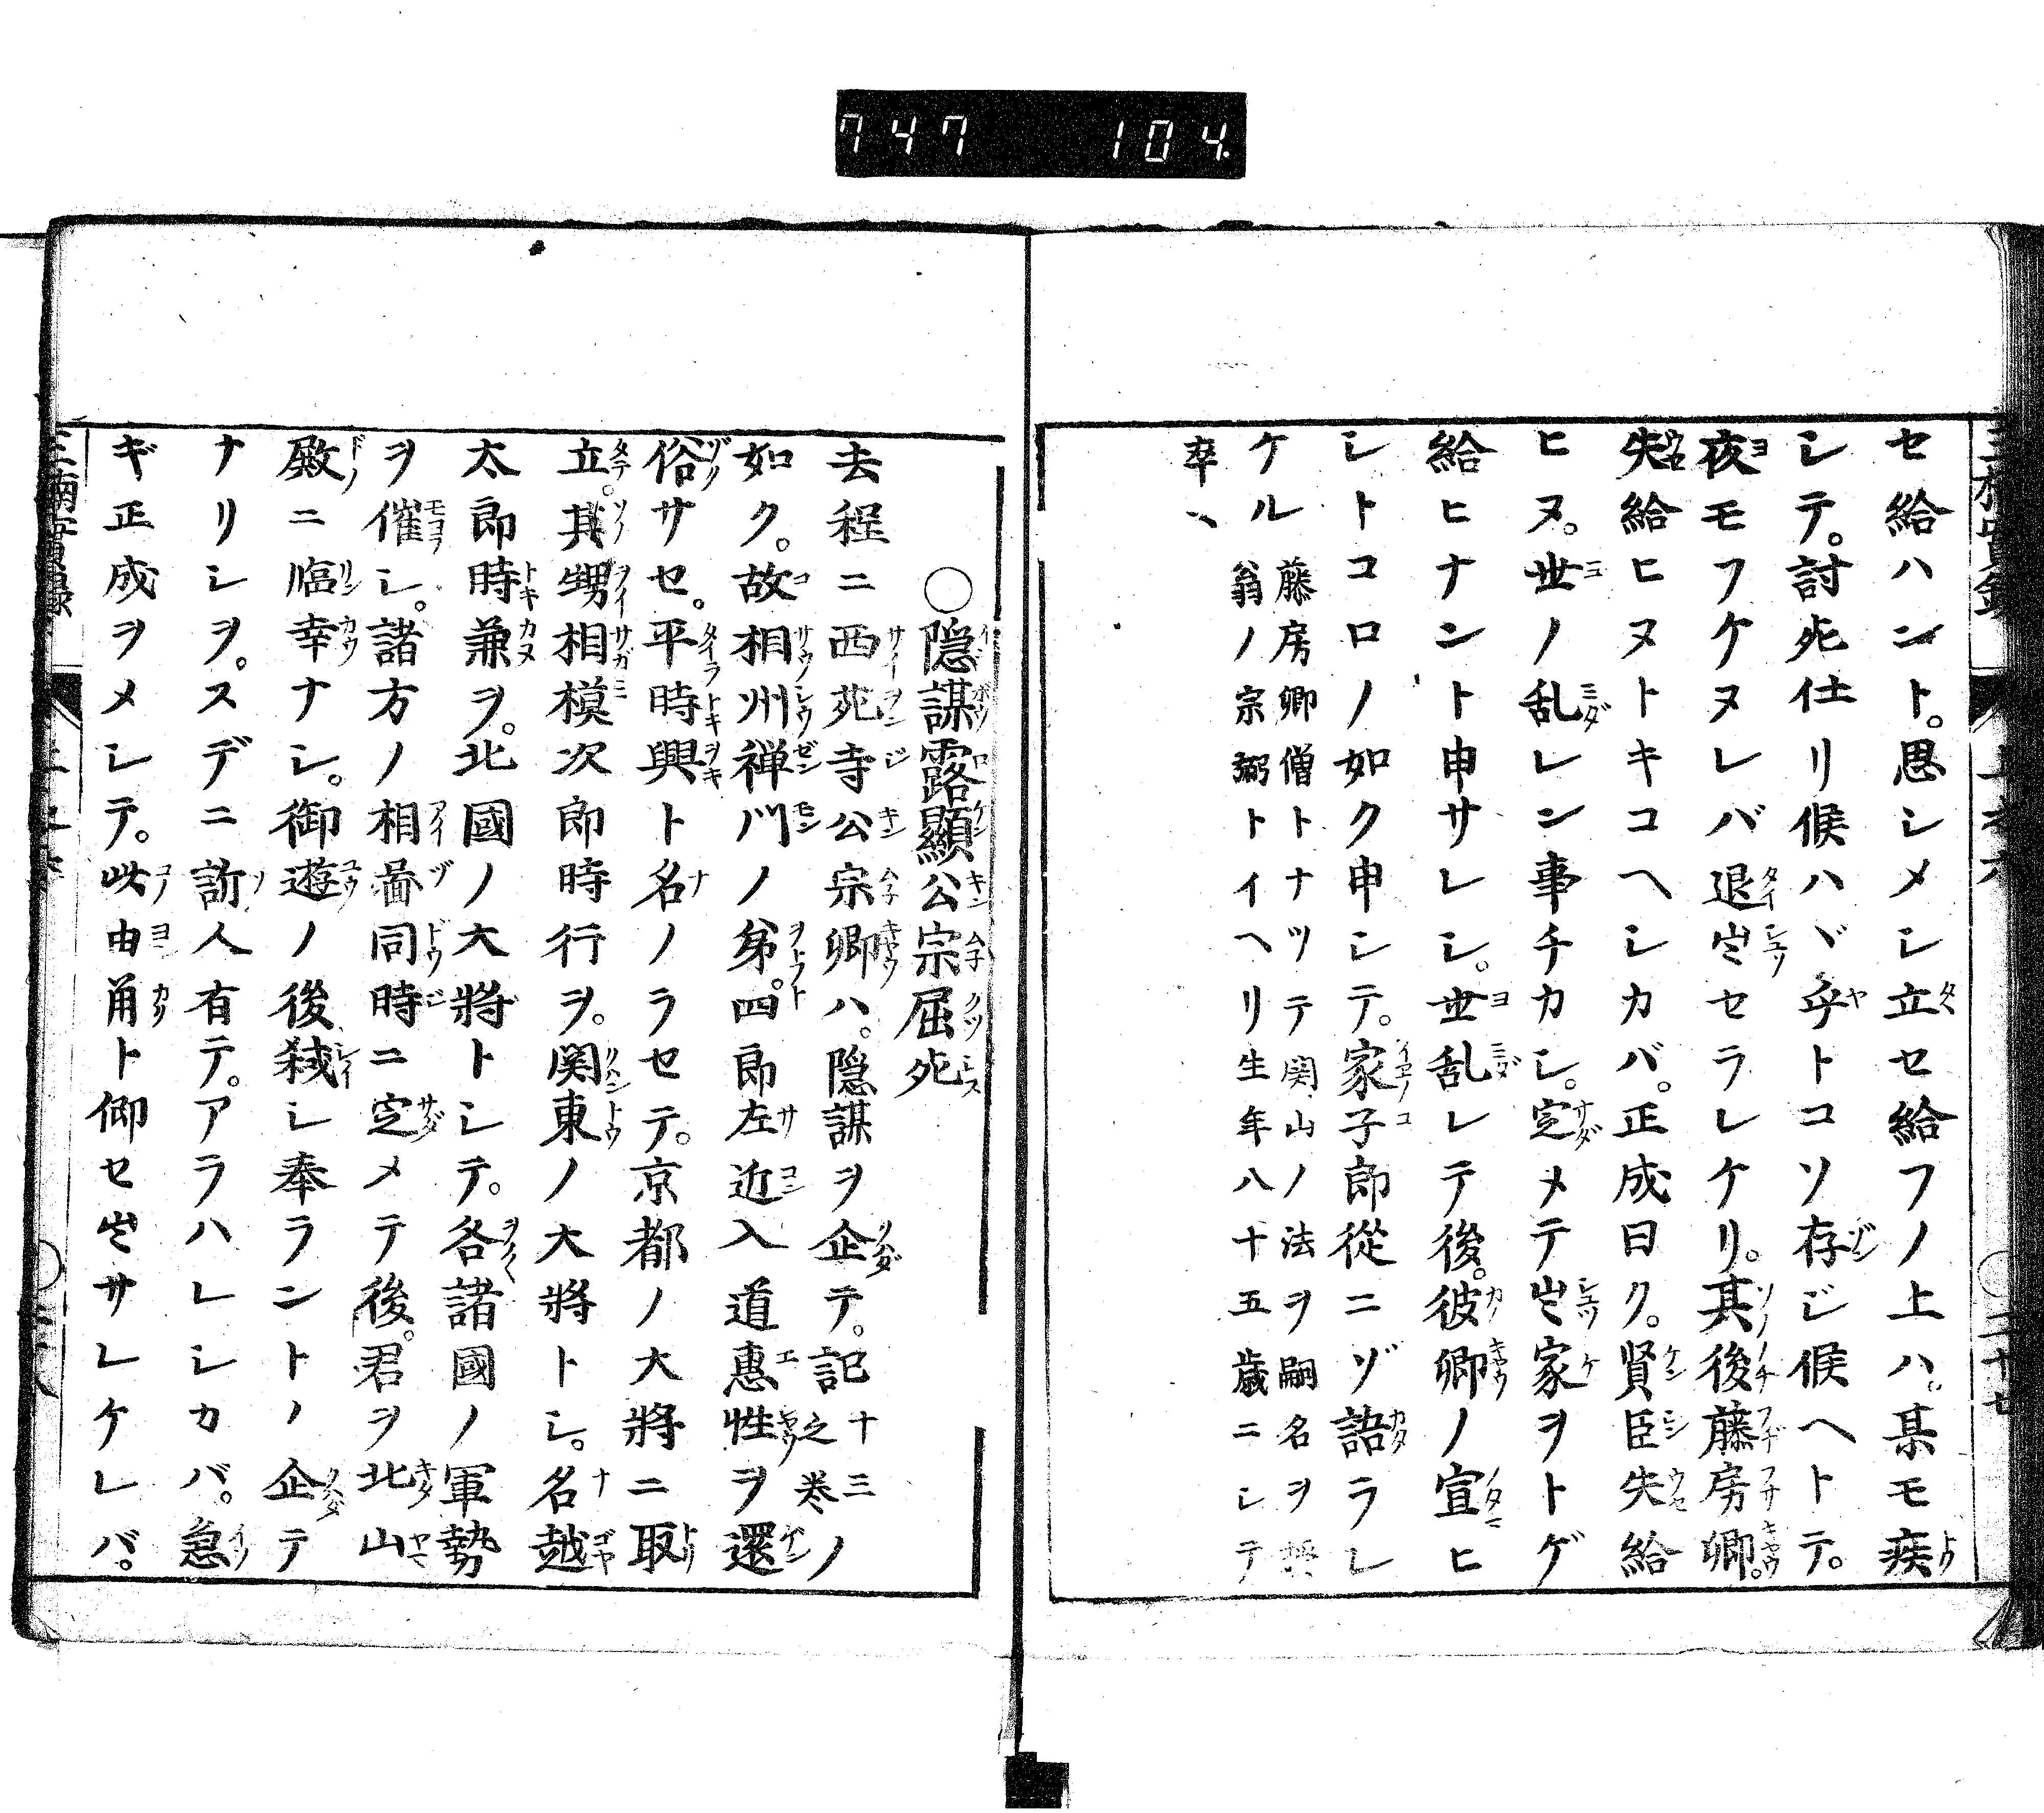 747 104
セ給ハント。思シメシ立セ給フノ上ハ。某モ疾
シテ。討死仕リ候ハヾ乎トコソ存ジ候ヘトテ。
夜モフケヌレバ退出セラレケリ。其後藤房卿。
失給ヒヌトキコヘシカバ。正成曰ク。賢臣失給
ヒヌ。世ノ乱レン事チカシ。定メテ出家ヲトゲ
給ヒナント申サレシ。世乱レテ後。彼卿ノ宣ヒ
シトコロノ如ク申シテ。家子郎從ニゾ語ラレ
ケル
藤房卿僧トナツテ関山ノ法ヲ嗣名ヲ
翁ノ宗弼トイヘリ生年八十五歳ニシテ
卒
〇隠謀露顯公宗屈死
去程ニ西苑寺公宗卿ハ。隠謀ヲ企テ。記十三之巻ノ
如ク。故相州禅門ノ弟。四郎左近入道惠性ヲ還
俗サセ。平時興ト名ノラセテ。京都ノ大將ニ取
立。其甥相模次郎時行ヲ。関東ノ大將トシ。名越
太郎時兼ヲ。北國ノ大將トシテ。各諸國ノ軍勢
ヲ催シ。諸方ノ相啚同時ニ定メテ後。君ヲ北山
殿ニ臨幸ナシ。御遊ノ後弑シ奉ラントノ企テ
ナリシヲ。スデニ訴人有テ。アラハレシカバ。急
ギ正成ヲメシテ。此由甪ト仰セ出サレケレバ。